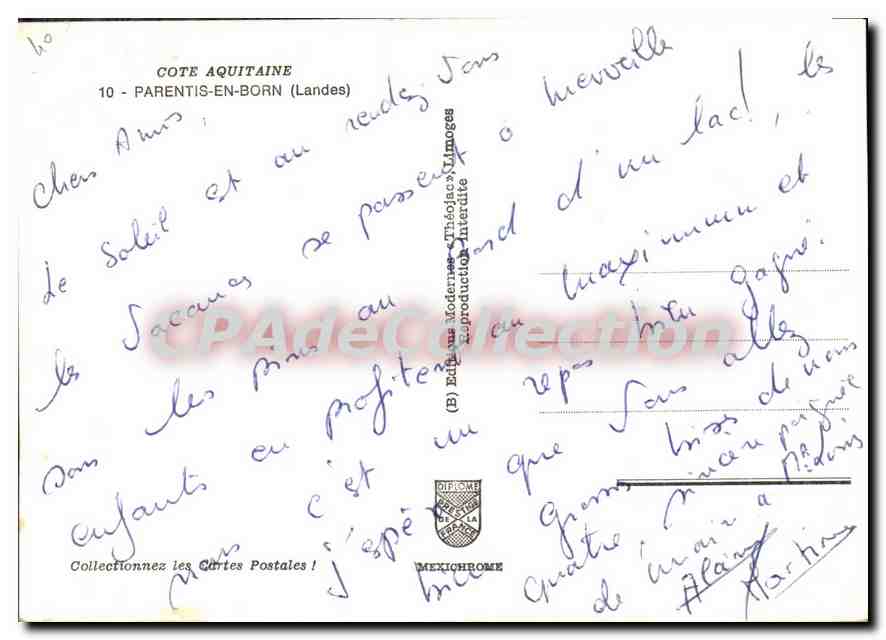 COTE AQUITAINE
10 - PARENTIS-EN-BORN (Landes)
Chers Amis,
Le Soleil est au rendez-vous
les vacances se passent à merveille
sous les pins au bord d'un lac!, les
enfants en profitent au maximum et
nous c'est un repos bien gagné.
j'espère que vous allez
bien grosses bises de nous
quatre, sincère poignée
de main à Mr Louis
Alain
Martine
(B) Editions Modernes «Théojac», Limoges
Reproduction Interdite
DIPLOME
PRESTIGE
DE LA
FRANCE
MEXICHROME
Collectionnez les Cartes Postales !
CPAdeCollection